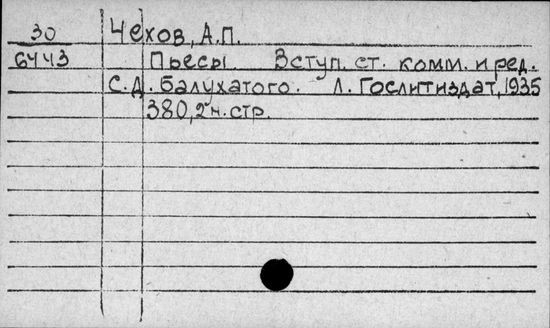 30 Чехов, А.П.
6443 Пьесы Вступ. ст. комм. и ред.
С.Д. Балухатого. Л. Гослитиздат, 1935
380, 2 н. стр.